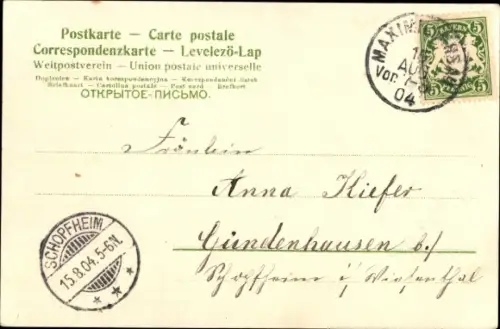 Postkarte – Carte postale
Correspondenzkarte – Levelező-Lap
Weltpostverein – Union postale universelle
Dopisnice – Karta korespondencyjna – Korespondenční lístek
Briefkaart – Cartolina postale – Post card – Brefkort
ОТКРЫТОЕ-ПИСЬМО.
BAYERN
5 5
MAXIM
1
AUG
Vor. 7-8
04
Fräulein
Anna Kiefer
Gündenhausen b/
Schopfheim i/ Wiesenthal
SCHOPFHEIM
15.8.04.5-6N.